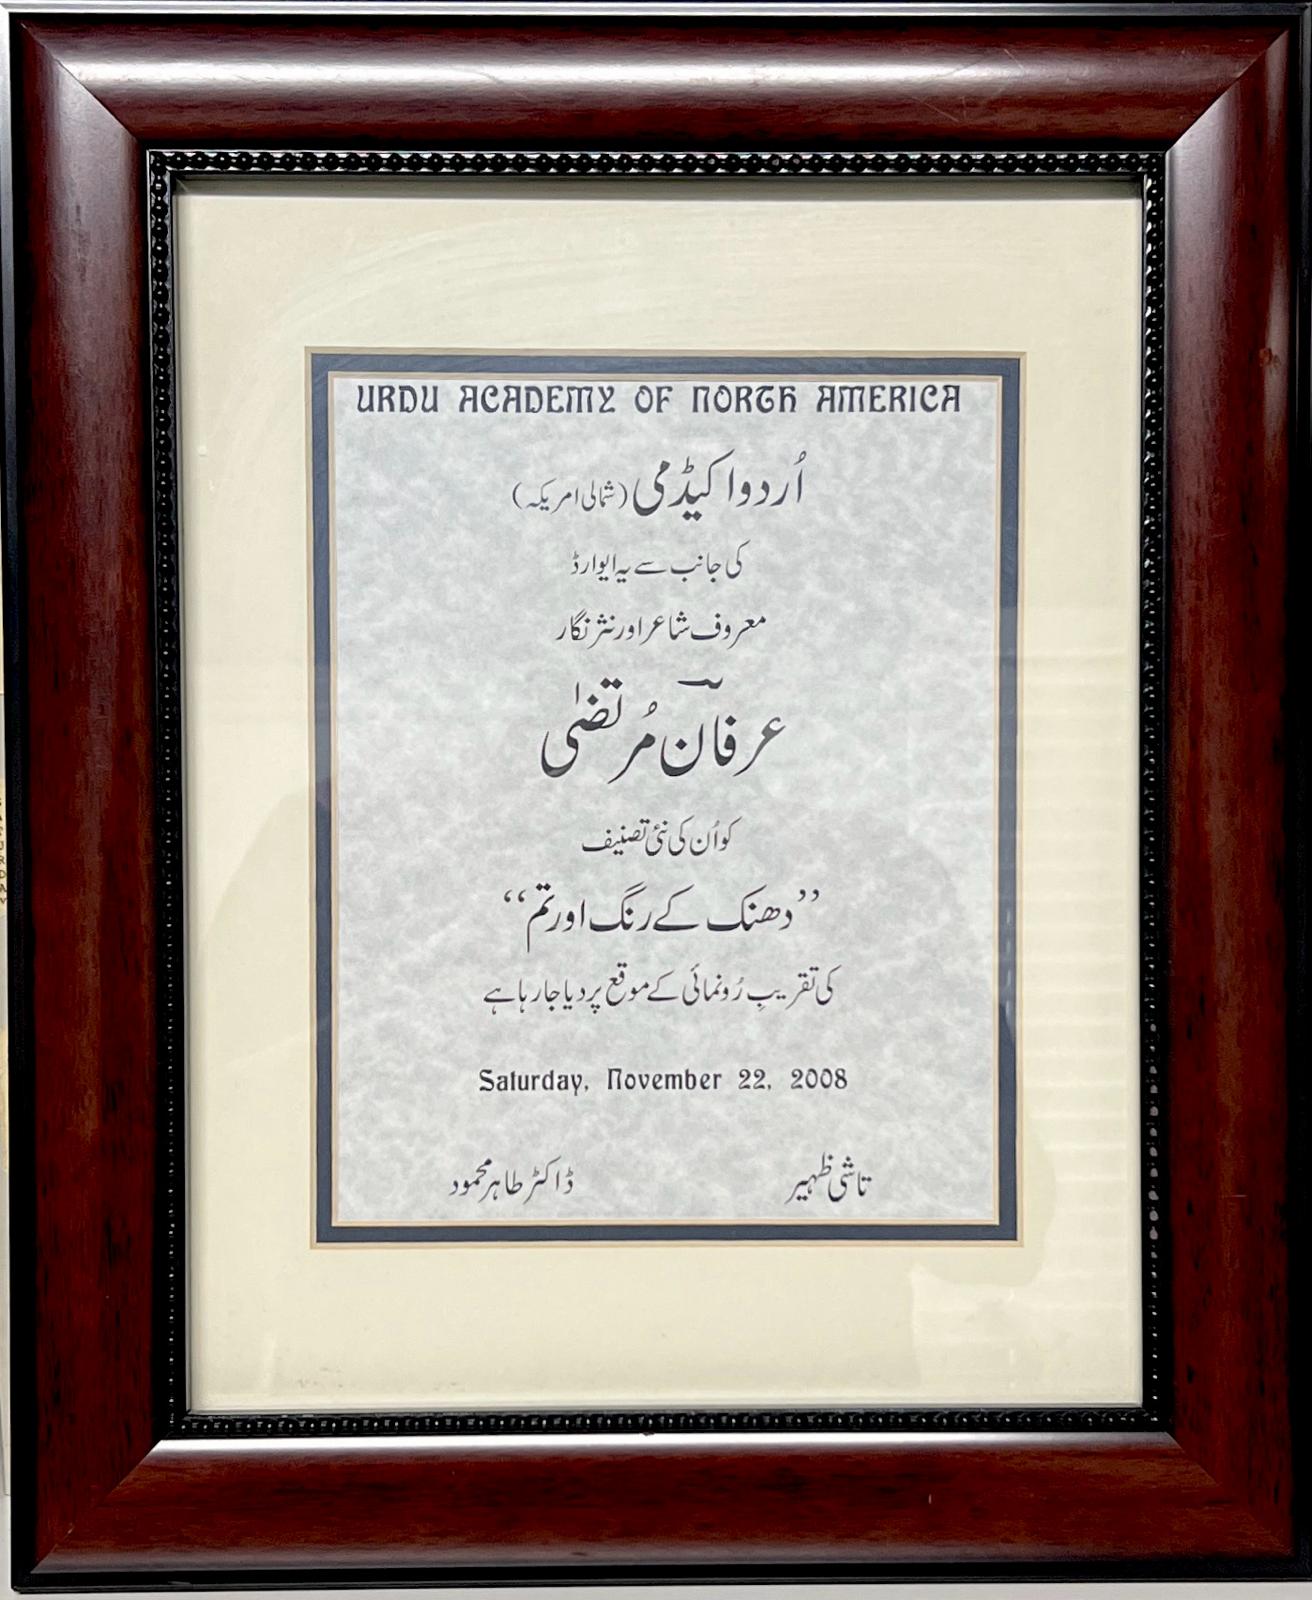 URDU ACADEMY OF NORTH AMERICA
اُردو اکیڈمی (شمالی امریکہ)
کی جانب سے یہ ایوارڈ
معروف شاعر اور نثر نگار
عرفانؔ مُرتضیٰ
کو اُن کی نئی تصنیف
”دھنک کے رنگ اور تم“
کی تقریبِ رُونمائی کے موقع پر دیا جا رہا ہے
Saturday, November 22, 2008
تاشی ظہیر ڈاکٹر طاہر محمود